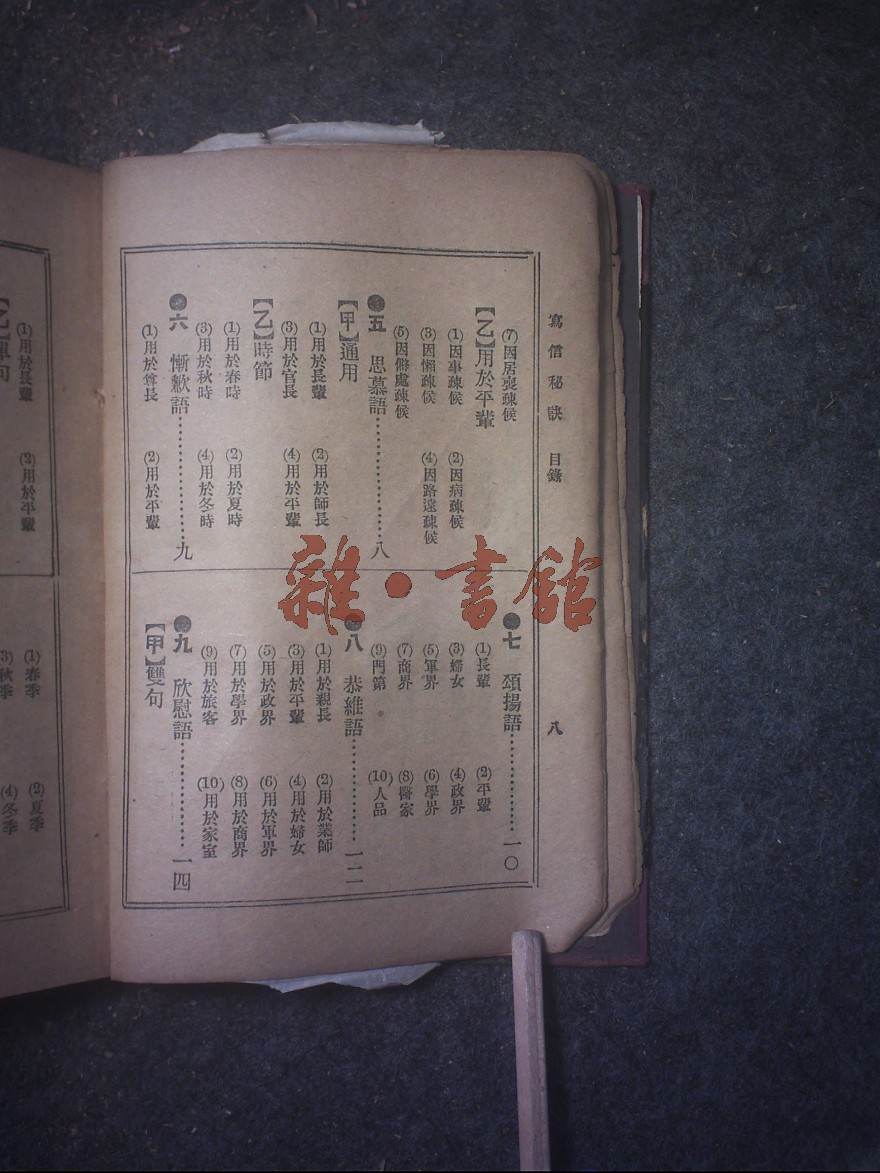 寫信秘訣 目錄 八
(7)因居喪疎候
【乙】用於平輩
(1)因事疎候 (2)因病疎候
(3)因懶疎候 (4)因路遠疎候
(5)因僻處疎候
●五 思慕語……………八
【甲】通用
(1)用於長輩 (2)用於師長
(3)用於官長 (4)用於平輩
【乙】時節
(1)用於春時 (2)用於夏時
(3)用於秋時 (4)用於冬時
●六 慚歉語……………九
(1)用於尊長 (2)用於平輩
●七 頌揚語……………一〇
(1)長輩 (2)平輩
(3)婦女 (4)政界
(5)軍界 (6)學界
(7)商界 (8)醫家
(9)門第 (10)人品
●八 恭維語……………一二
(1)用於親長 (2)用於業師
(3)用於平輩 (4)用於婦女
(5)用於政界 (6)用於軍界
(7)用於學界 (8)用於商界
(9)用於旅客 (10)用於家室
●九 欣慰語……………一四
【甲】雙句
(1)用於長輩 (2)用於平輩
【乙】單句
(1)春季 (2)夏季
(3)秋季 (4)冬季
雜·書館